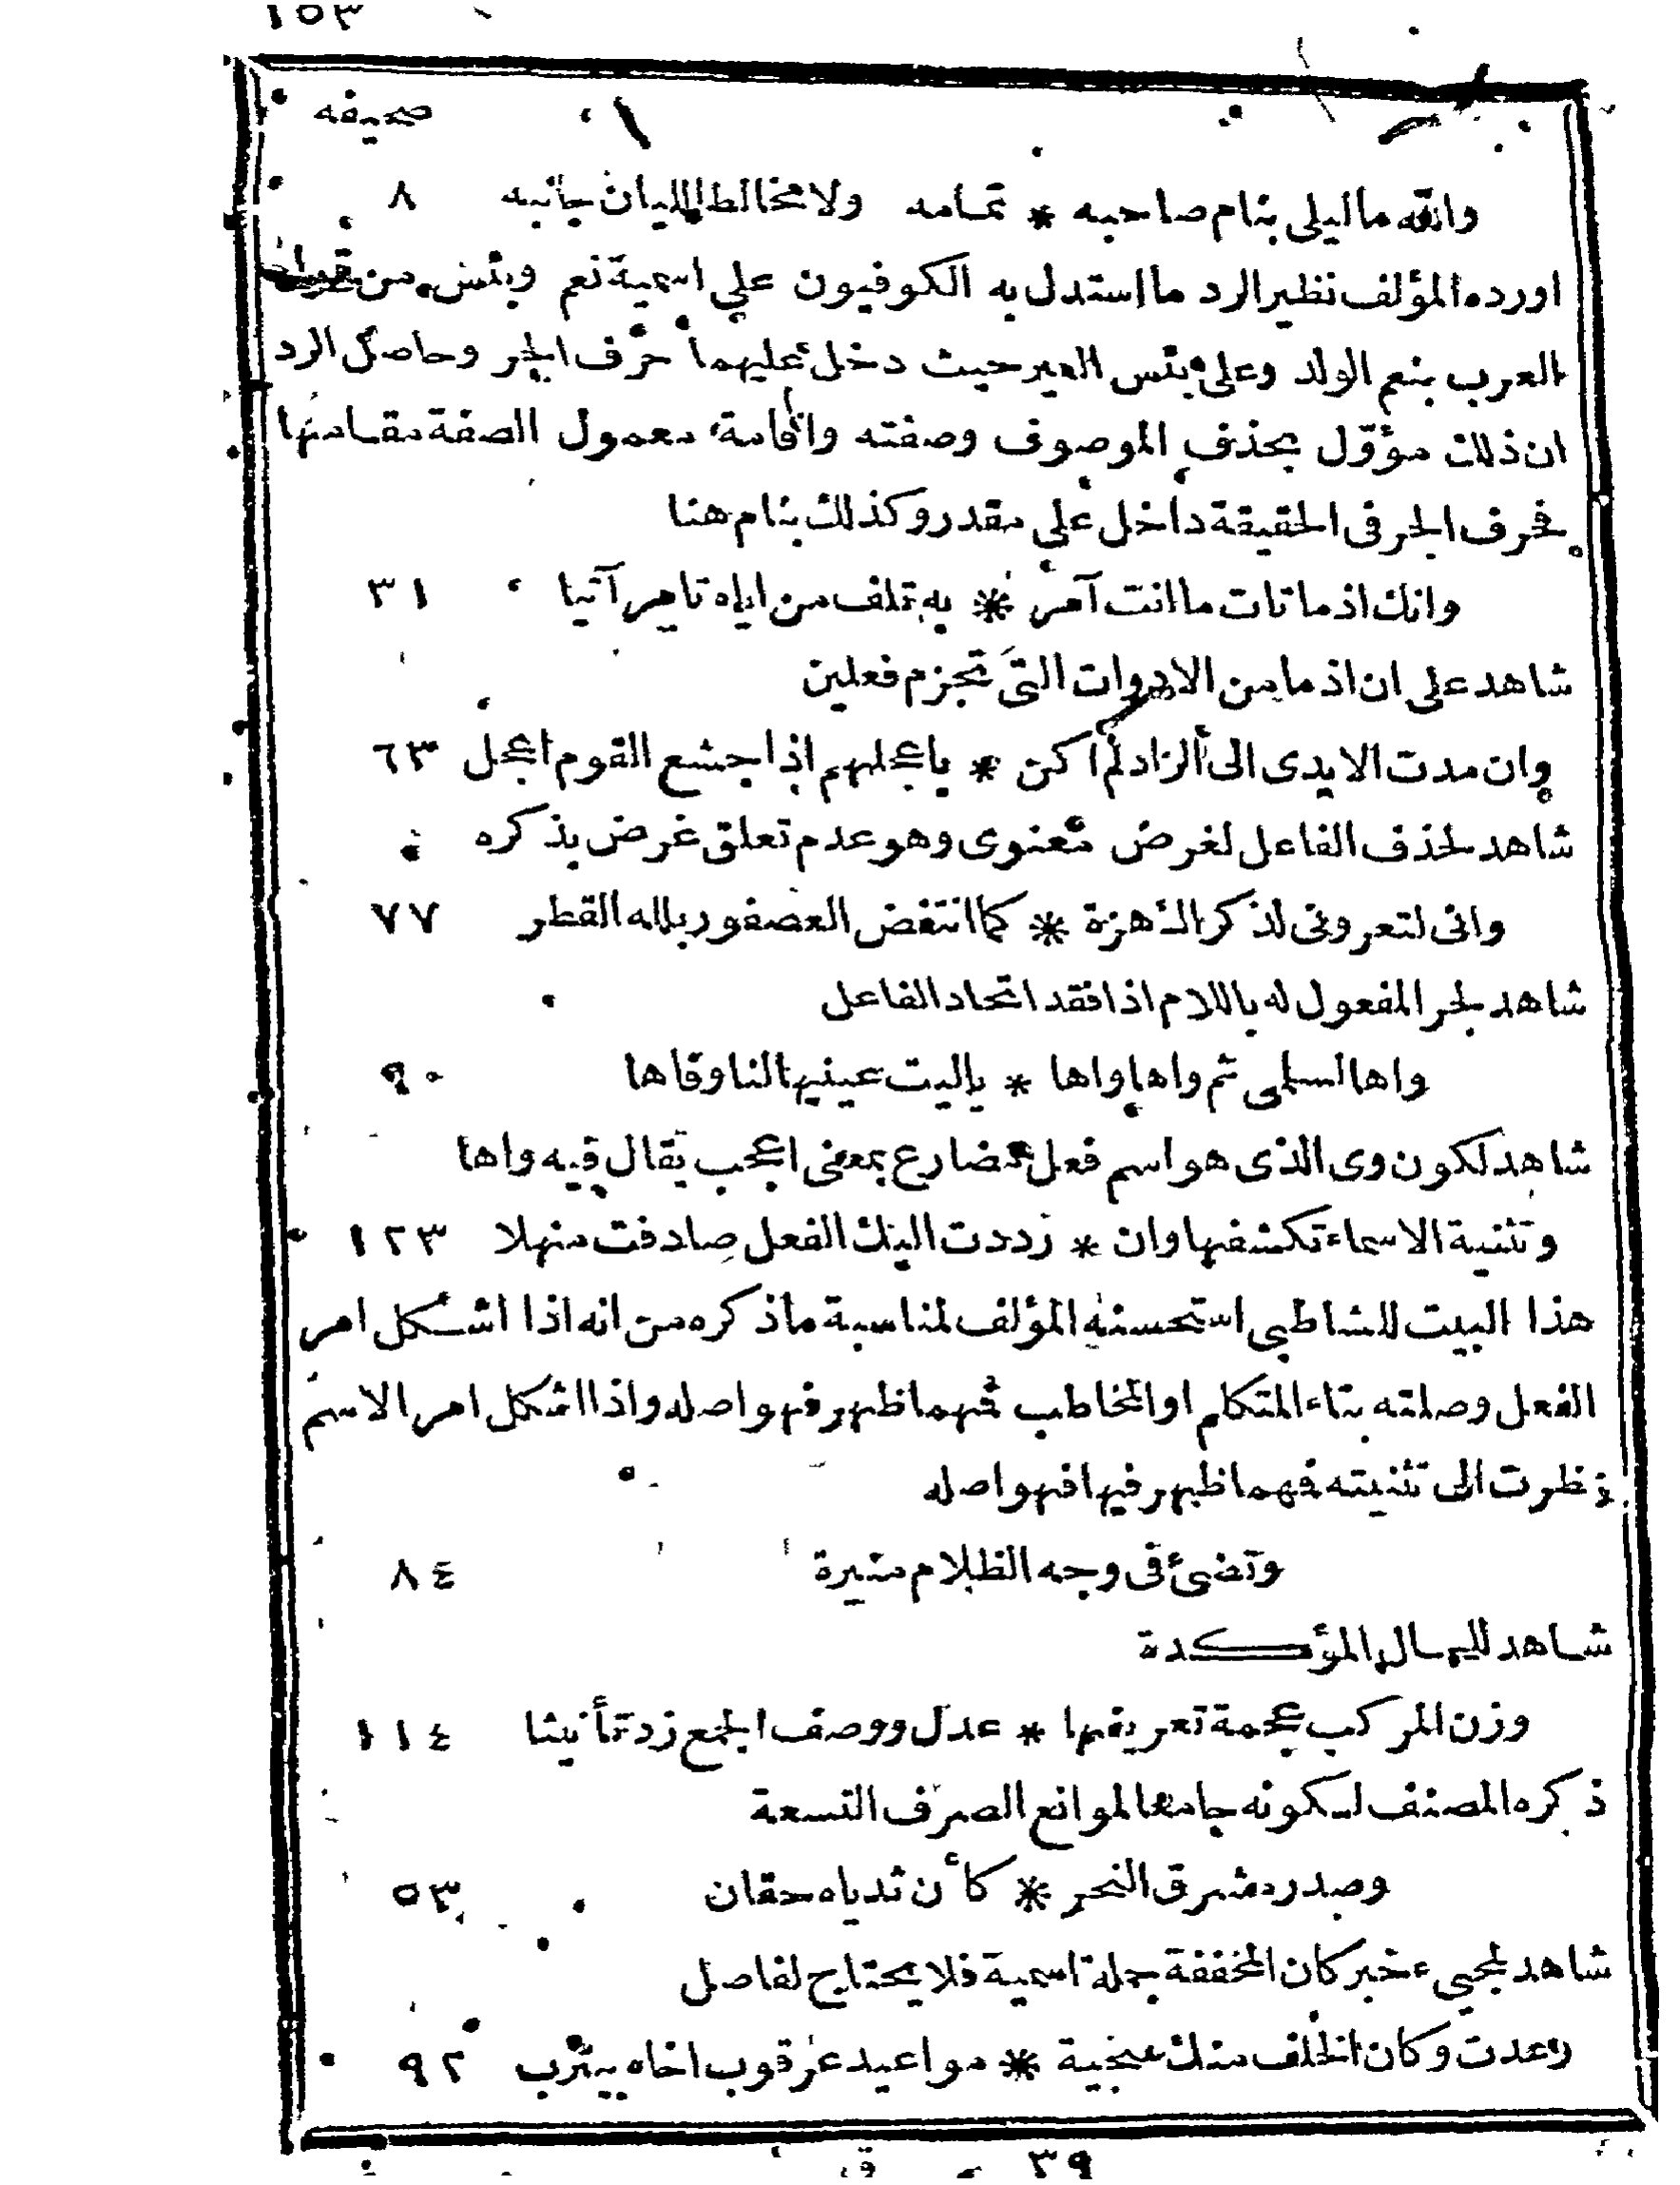 ١٥٣
صحيفه
والله ما ليلى بنام صاحبه * تمامه ولا مخالط الليان جانبه ٨
اورده المؤلف نظير الرد ما استدل به الكوفيون على اسمية نعم وبئس من قول
العرب بنعم الولد وعلى بئس العير حيث دخل عليهما حرف الجر وحاصل الرد
ان ذلك مؤوّل بحذف الموصوف وصفته واقامة معمول الصفة مقامها
فحرف الجر فى الحقيقة داخل على مقدر وكذلك بنام هنا
وانك اذ ما تات ما انت آمر * به تلف من اياه تامر آتيا ٣١
شاهد على ان اذ ما من الادوات التى تجزم فعلين
وان مدت الايدى الى الزاد لم اكن * باعجلهم اذ اجشع القوم اعجل ٦٣
شاهد لحذف الفاعل لغرض معنوى وهو عدم تعلق غرض بذكره
وانى لتعرونى لذكراك هزة * كما انتفض العصفور بلله القطر ٧٧
شاهد لجر المفعول له باللام اذا فقد اتحاد الفاعل
واها لسلمى ثم واها واها * ياليت عينيها لنا وفاها ٩٠
شاهد لكون وى الذى هو اسم فعل مضارع بمعنى اعجب يقال فيه واها
وتثنية الاسماء تكشفها وان * رددت اليك الفعل صادفت منهلا ١٢٣
هذا البيت للشاطبى استحسنه المؤلف لمناسبة ما ذكره من انه اذا اشكل امر
الفعل وصلته بتاء المتكلم او المخاطب فمهما ظهر فهو اصله واذا اشكل امر الاسم
نظرت الى تثنيته فمهما ظهر فيها فهو اصله
وتضئ فى وجه الظلام منيرة ٨٤
شاهد للحال المؤكدة
وزن المركب عجمة تعريفها * عدل ووصف الجمع زد تأنيثا ١١٤
ذكره المصنف لكونه جامعا لموانع الصرف التسعة
وصدر مشرق النحر * كأن ثدياه حقان ٥٣
شاهد لمجىء خبر كان المخففة جملة اسمية فلا يحتاج لفاصل
وعدت وكان الخلف منك سجية * مواعيد عرقوب اخاه بيترب ٩٢
٣٩ ق